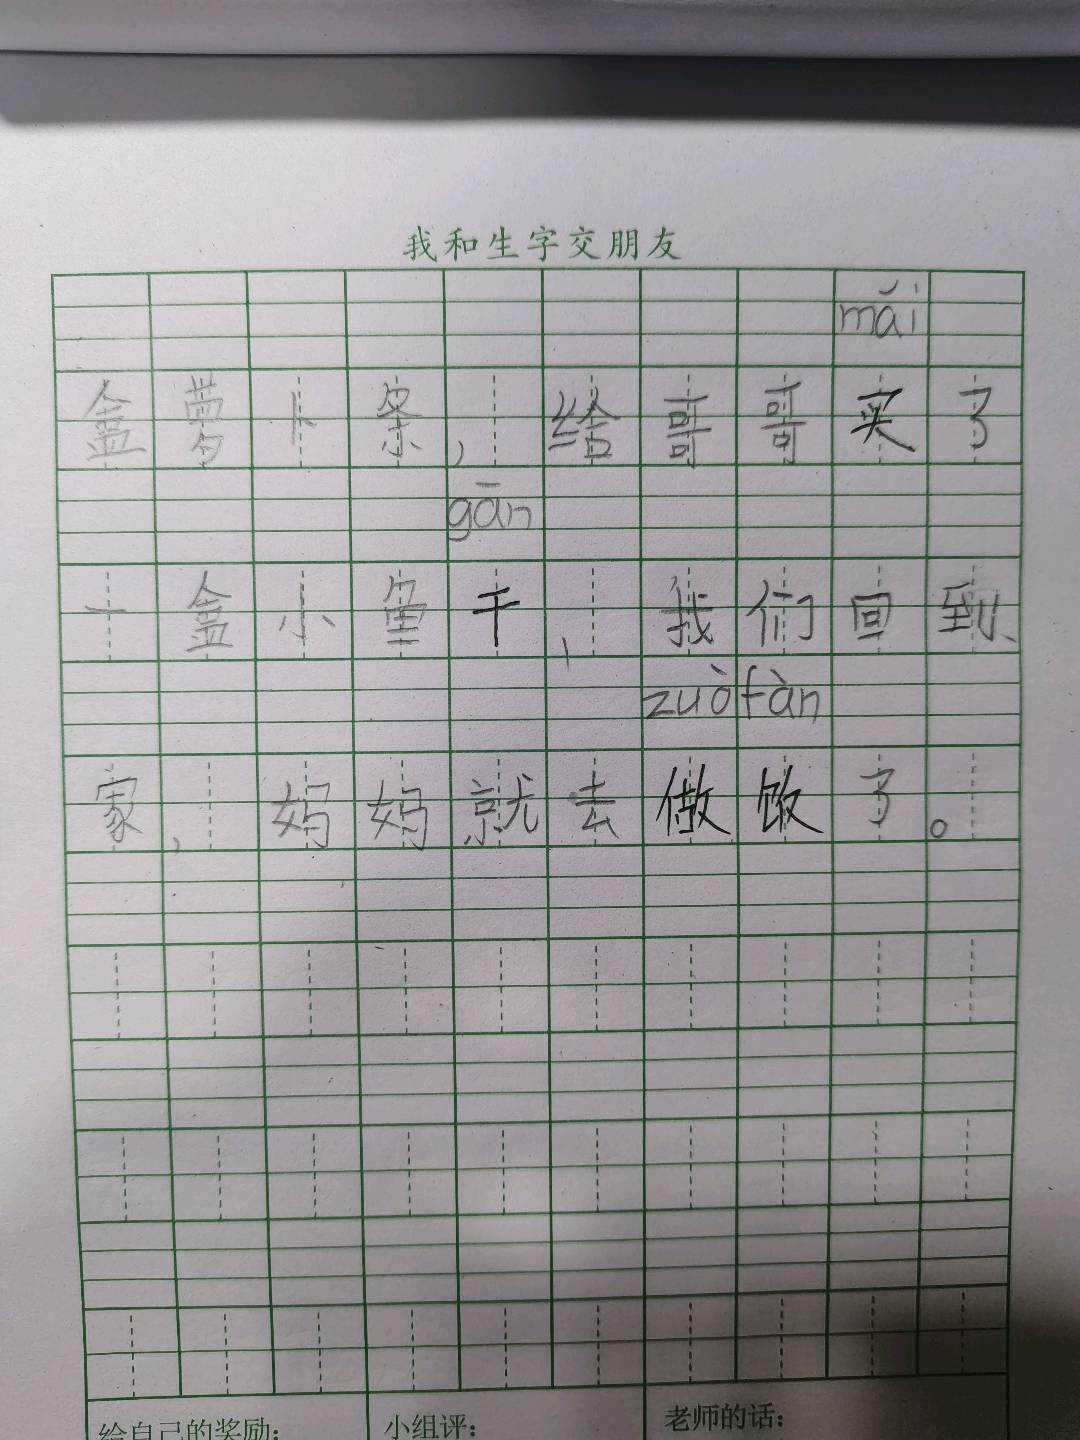 我和生字交朋友
mǎi
盒萝卜条，给哥哥买了
gān
一盒小鱼干，我们回到
zuò fàn
家，妈妈就去做饭了。
给自己的奖励：
小组评：
老师的话：